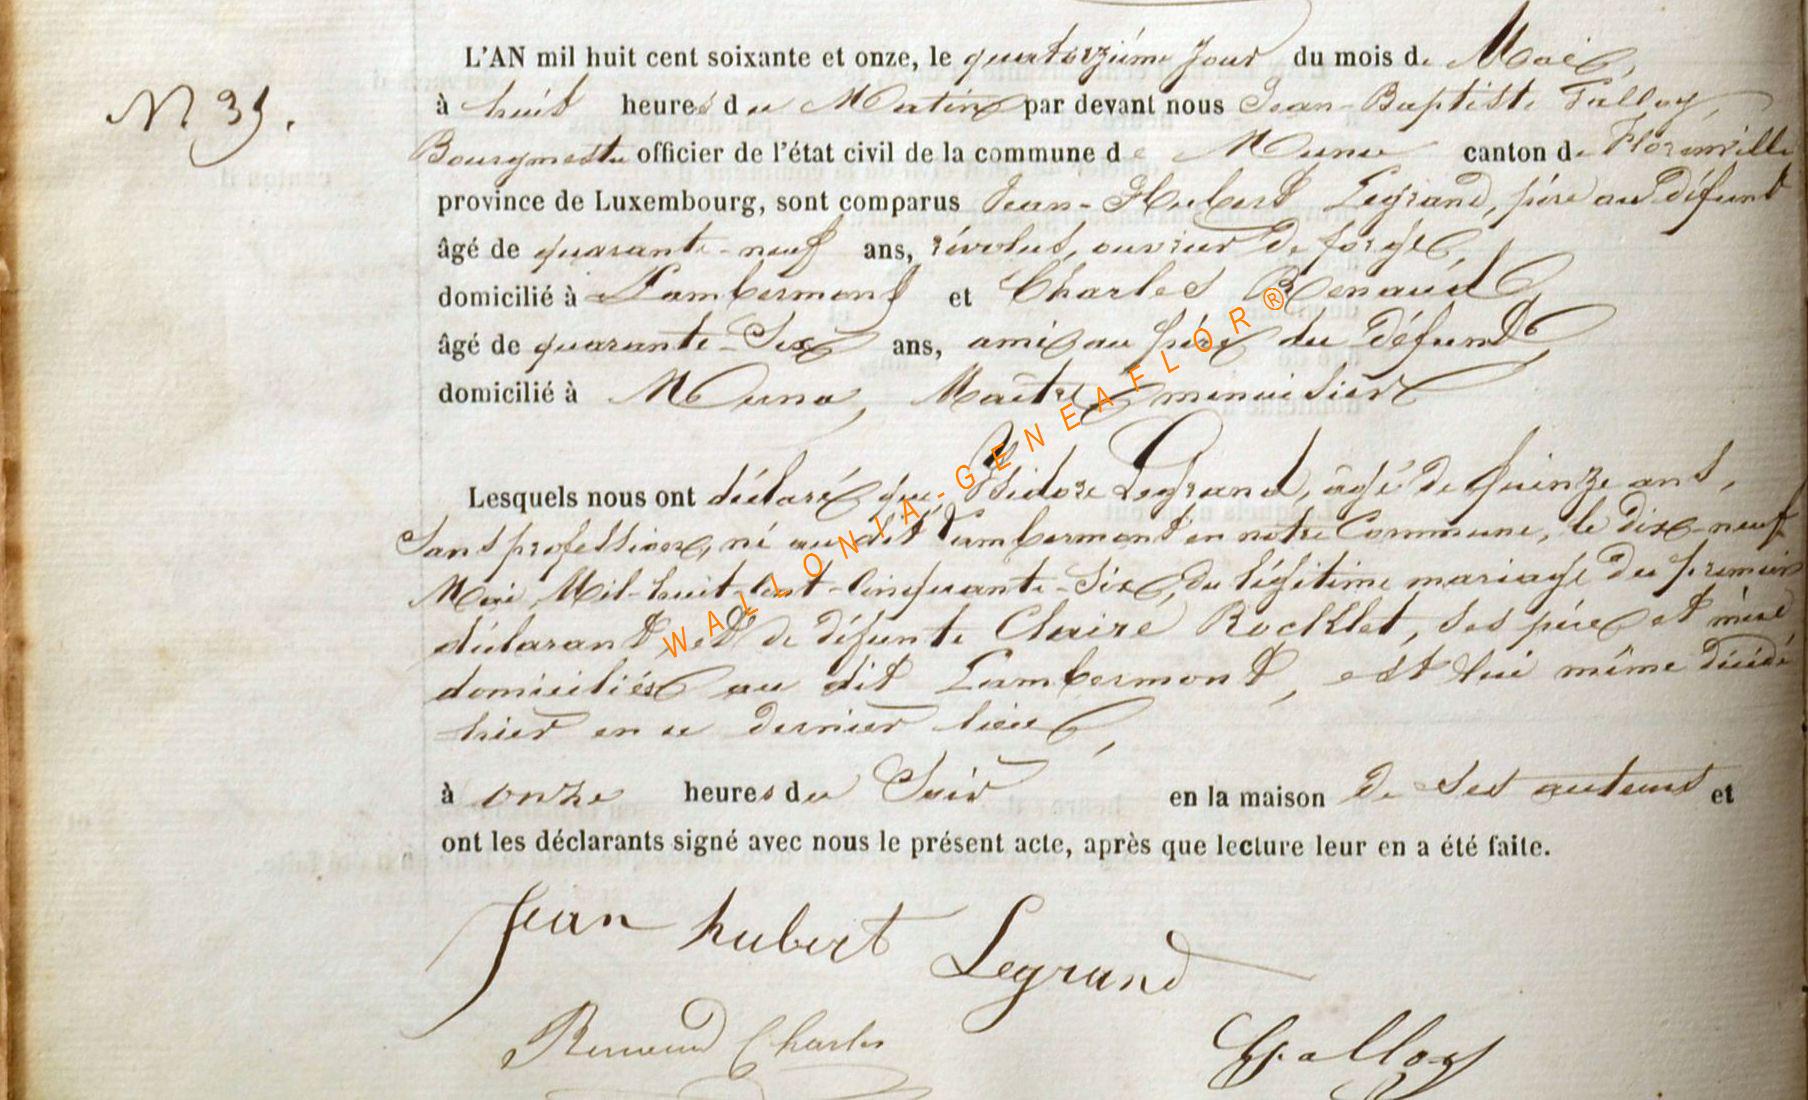 L'AN mil huit cent soixante et onze, le quatorzième jour du mois de Mai,
N 35.
à huit heures du Matin par devant nous Jean-Baptiste Talloy,
Bourgmestre officier de l'état civil de la commune de Muno canton de Florenville
province de Luxembourg, sont comparus Jean-Hubert Legrand, père au défunt
âgé de quarante-neuf ans, révolus, ouvrier de forge,
domicilié à Lambermont et Charles Renaud,
âgé de quarante-Six ans, ami au père du défunt,
domicilié à Muno, Maître menuisier
Lesquels nous ont déclaré que Isidore Legrand, âgé de quinze ans,
Sans profession, né au dit Lambermont en notre Commune, le dix-neuf
Mai Mil-huit-cent-cinquante-Six, du légitime mariage du premier
déclarant, et de défunte Claire Rocklet, ses père et mère
domiciliés au dit Lambermont, est lui même décédé
hier en ce dernier lieu,
à onze heures du Soir en la maison de ses auteurs et
ont les déclarants signé avec nous le présent acte, après que lecture leur en a été faite.
Jean hubert Legrand
Renaud Charles
Talloy
WALLONIA-GENEAFLOR®